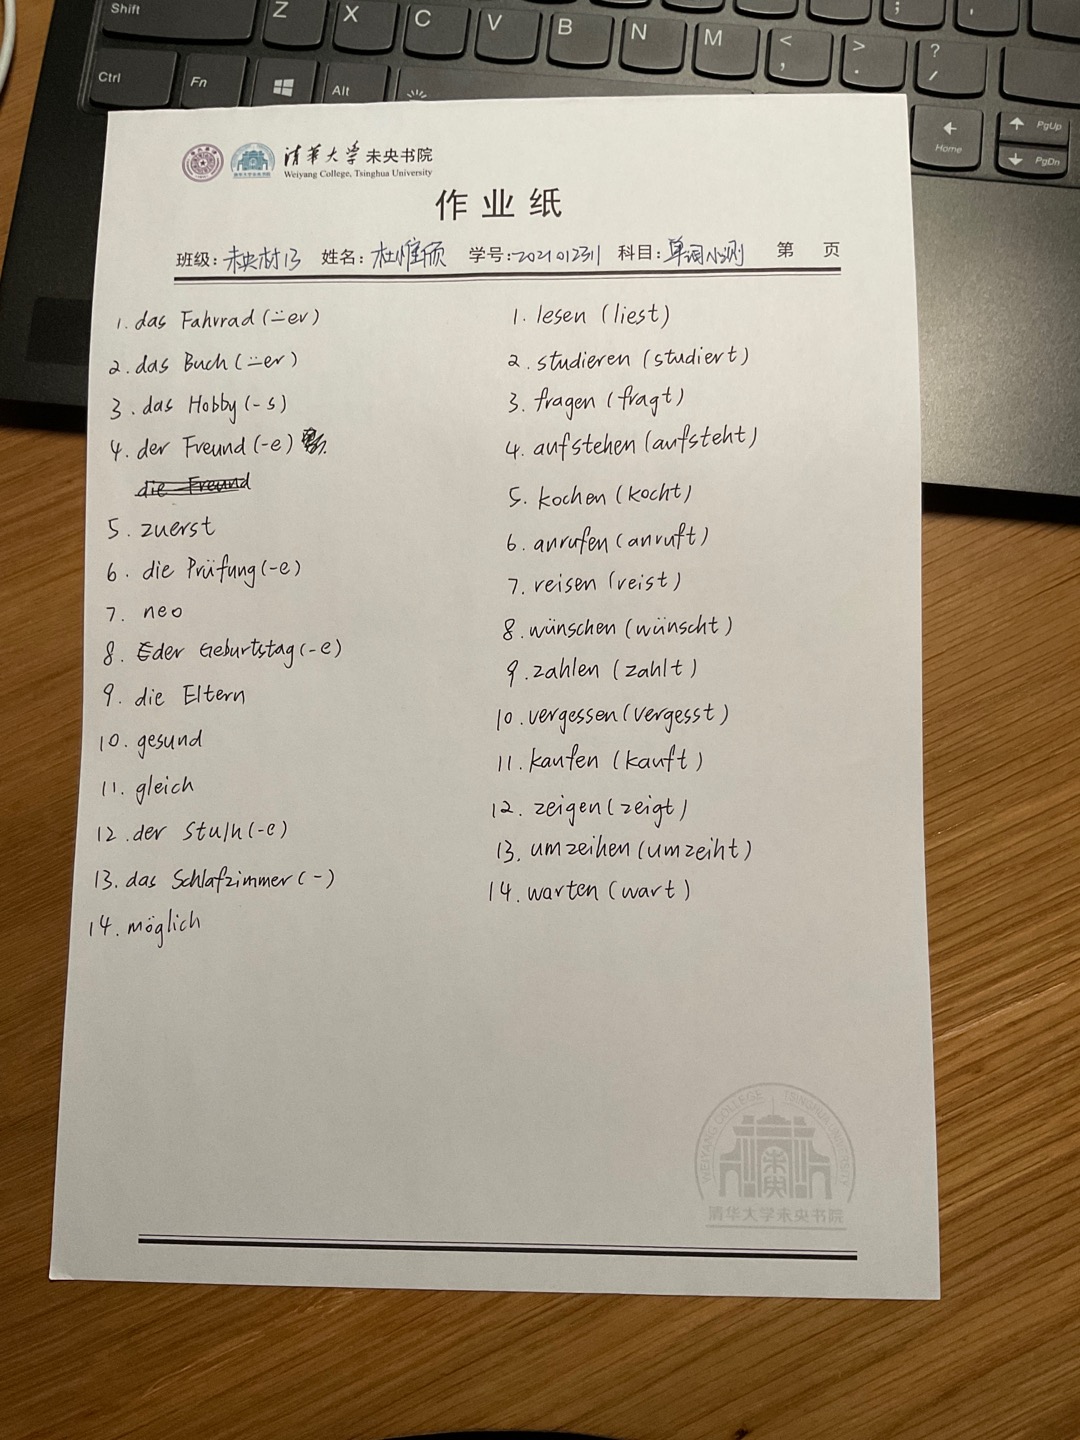 Shift
Z
X
C
V
B
N
M
<
,
>
.
?
/
;
Ctrl
Fn
Alt
Home
PgUp
PgDn
清华大学 未央书院
Weiyang College, Tsinghua University
作业纸
班级: 未央材13 姓名: 杜惟硕 学号: 2021012311 科目: 单词小测 第 页
1. das Fahrrad (⸚er)
2. das Buch (⸚er)
3. das Hobby (-s)
4. der Freund (-e)
die Freund
5. zuerst
6. die Prüfung (-e)
7. neo
8. der Geburtstag (-e)
9. die Eltern
10. gesund
11. gleich
12. der Stulh (-e)
13. das Schlafzimmer (-)
14. möglich
1. lesen (liest)
2. studieren (studiert)
3. fragen (fragt)
4. aufstehen (aufsteht)
5. kochen (kocht)
6. anrufen (anruft)
7. reisen (reist)
8. wünschen (wünscht)
9. zahlen (zahlt)
10. vergessen (vergesst)
11. kaufen (kauft)
12. zeigen (zeigt)
13. umzeihen (umzeiht)
14. warten (wart)
WEIYANG COLLEGE TSINGHUA UNIVERSITY
未央
清华大学未央书院